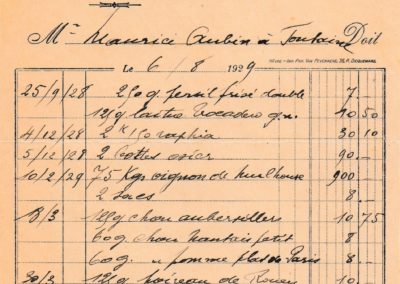 Mr Maurice Aubin à Fontaine Doit
Le 6/8 1929
25/9/28 250g persil frisé double 7.-
125g laitue Trocadéro g.n. 10 50
4/12/28 2 K 1/2 raphia 30 10
5/12/28 2 bottes osier 90.-
10/2/29 75 Kgs oignon de Mulhouse 900.-
2 Sacs 8.-
18/3 125g chou aubervillers 10 75
60g chou Nantais petit 8
60g " pomme plat de Paris 8.-
30/3 125g poireau de Rouen 10.-